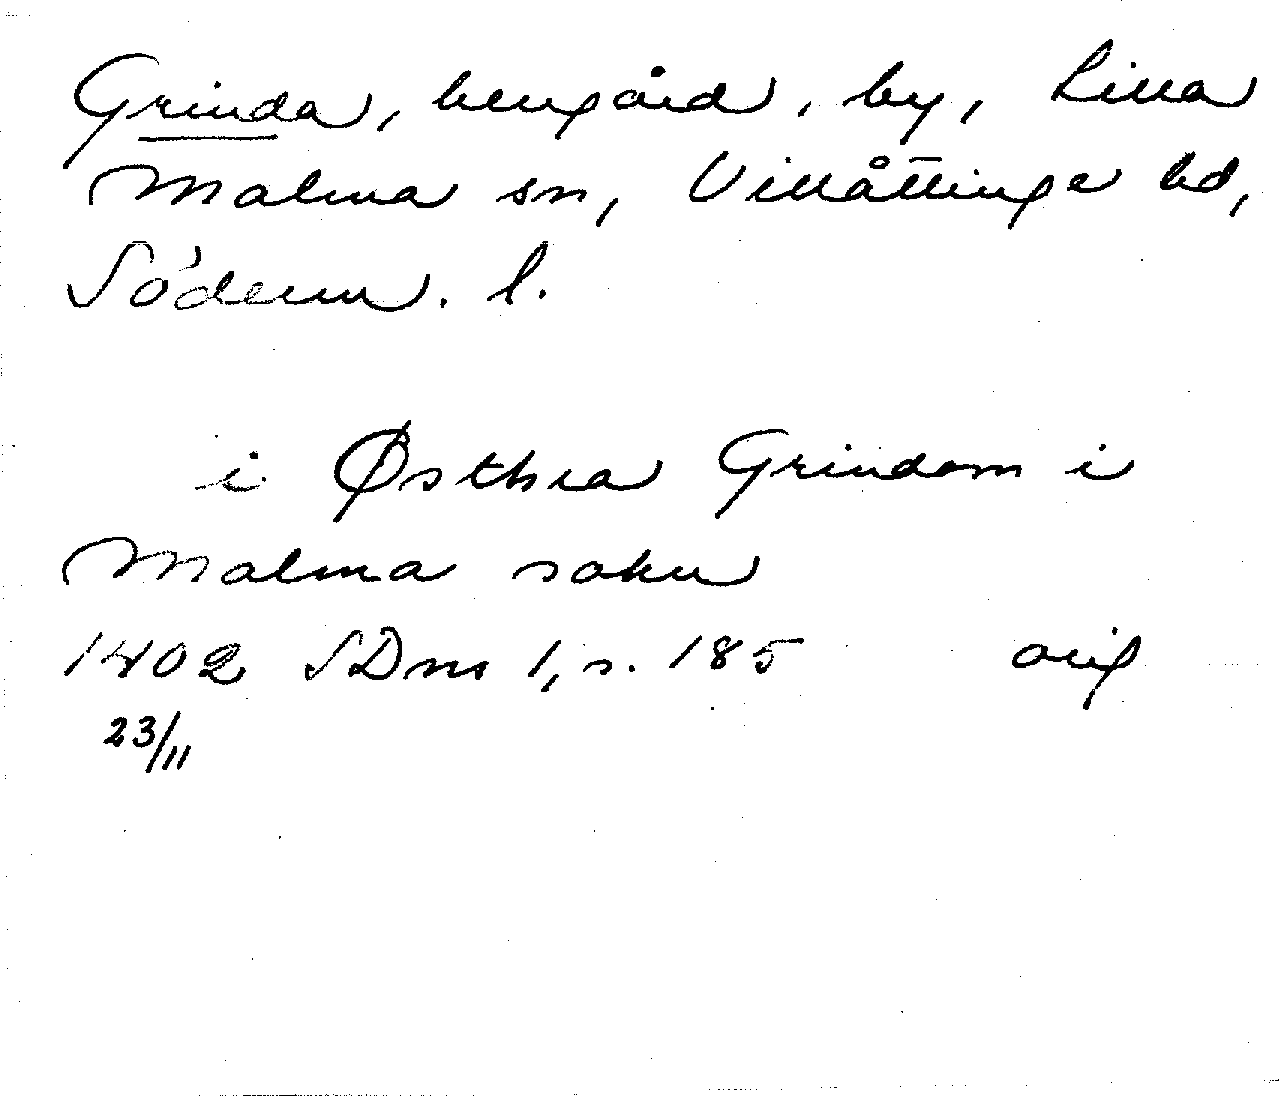 Grinda, herrgård, by, Lilla
Malma sn, Villåttinge hd,
Söderm. l.
i Østhra Grindom i
Malma sokn
1402 SDns 1, s. 185 orig
23/11